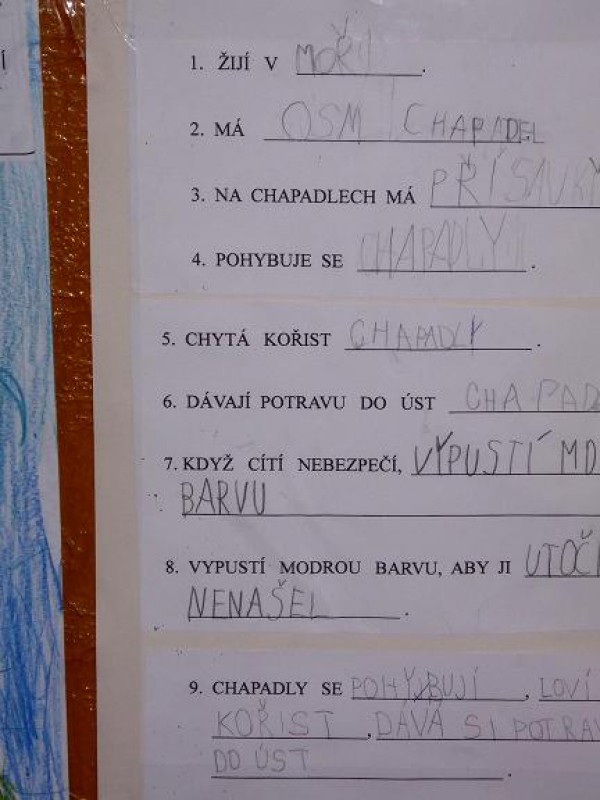 Í
1. ŽIJÍ V MOŘI.
2. MÁ OSM CHAPADEL
3. NA CHAPADLECH MÁ PŘÍSAVKY
4. POHYBUJE SE CHAPADLY.
5. CHYTÁ KOŘIST CHAPADLY.
6. DÁVAJÍ POTRAVU DO ÚST CHAPAD
7. KDYŽ CÍTÍ NEBEZPEČÍ, VYPUSTÍ MO
BARVU
8. VYPUSTÍ MODROU BARVU, ABY JI UTOČ
NENAŠEL.
9. CHAPADLY SE POHYBUJÍ, LOVÍ
KOŘIST, DÁVÁ SI POTRAV
DO ÚST.